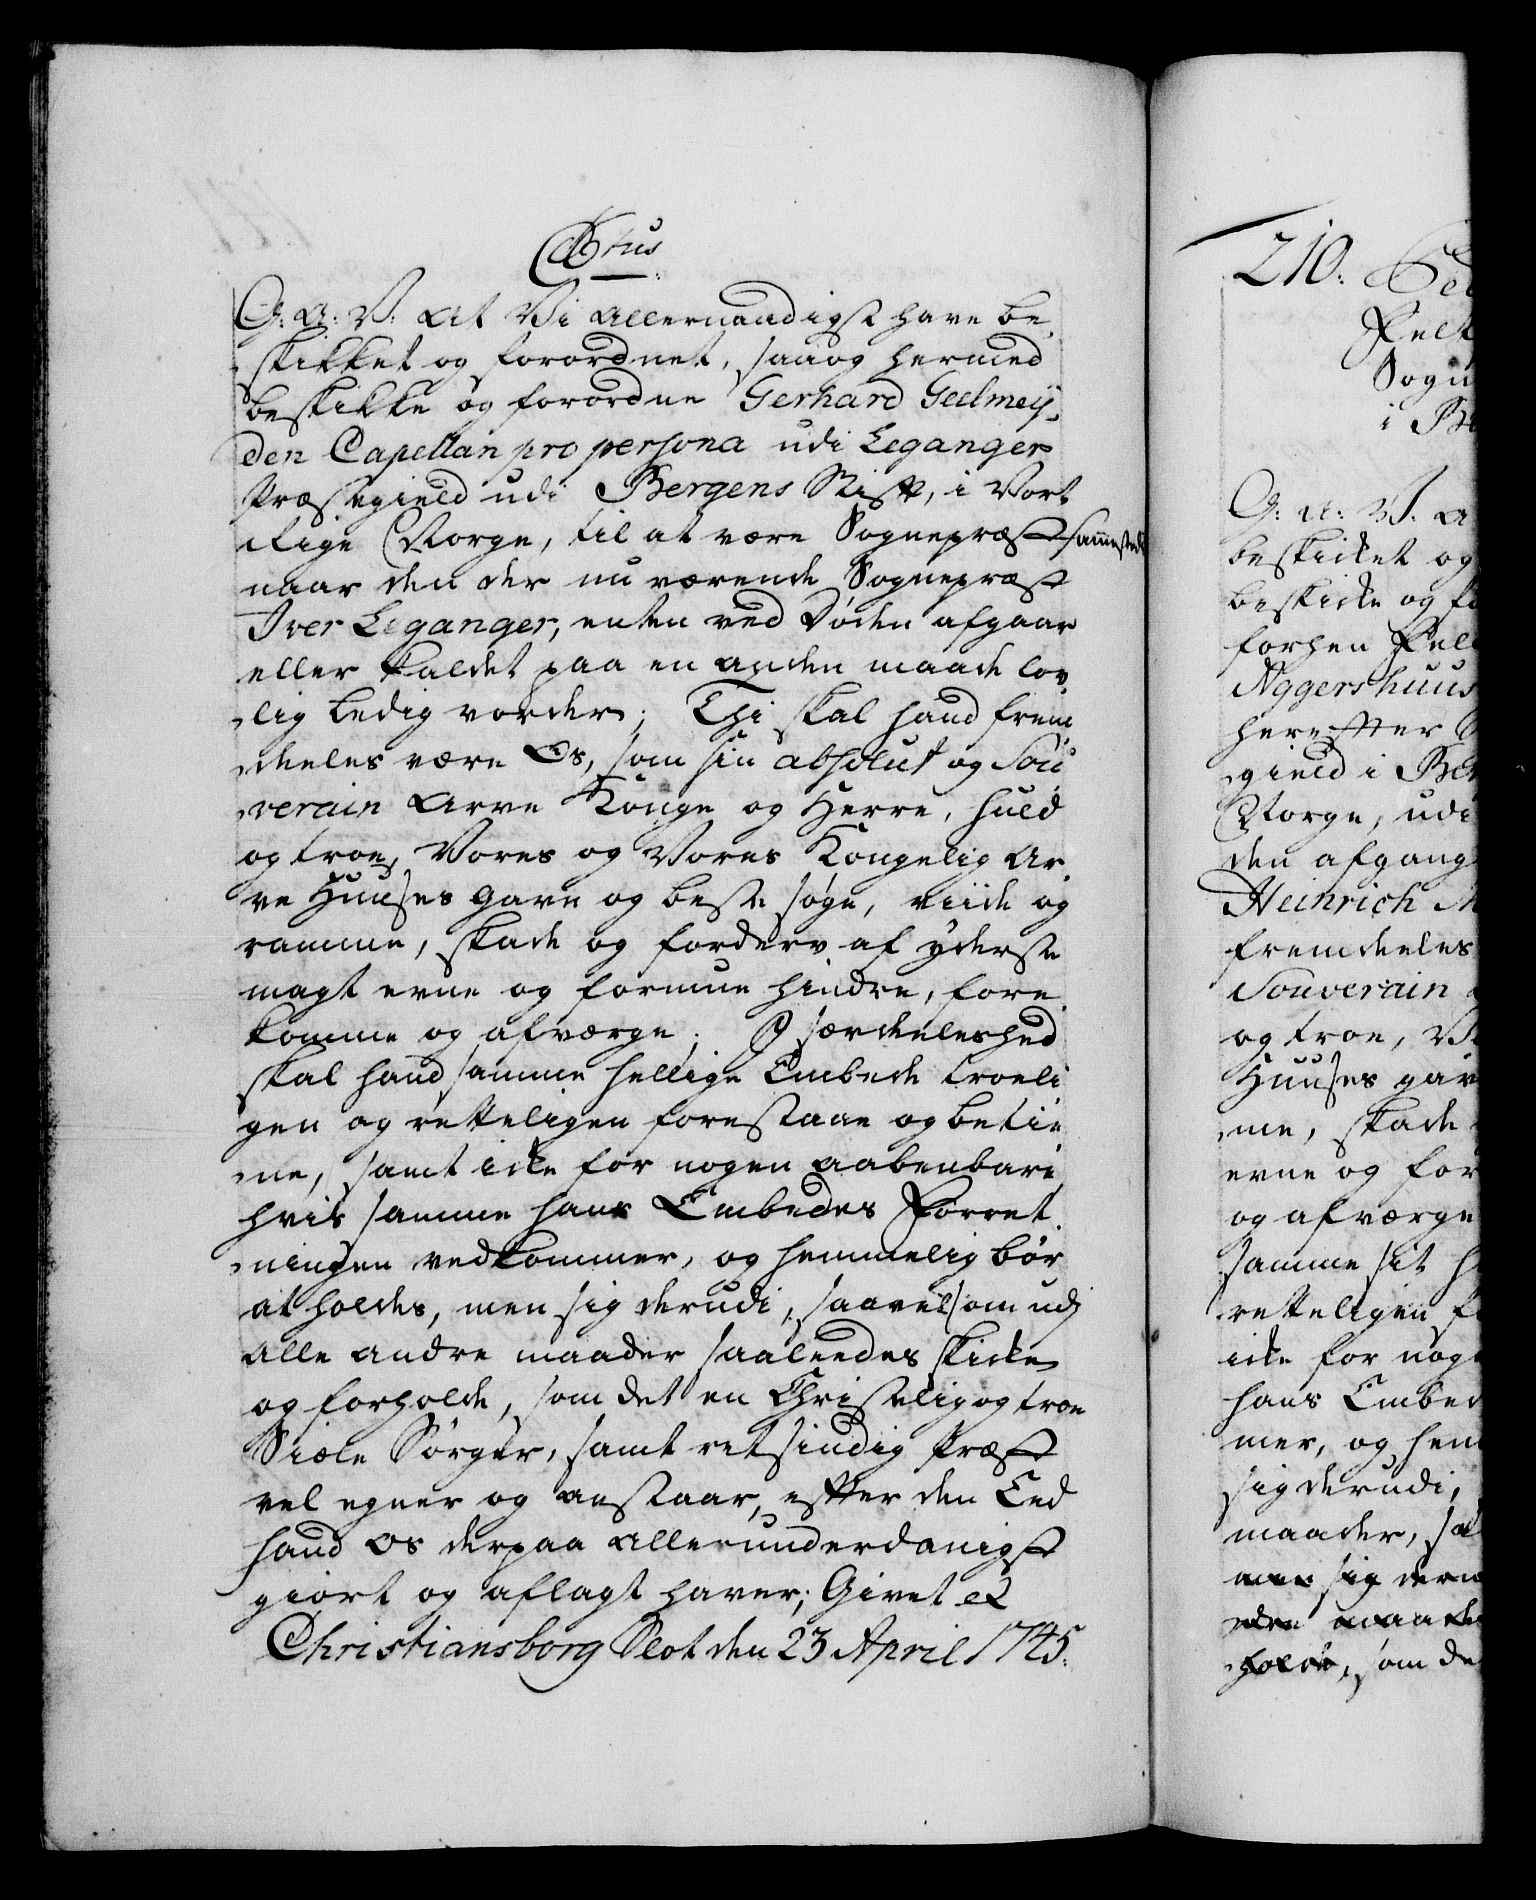 C 6tus
G: A: V: At Vi Allernaadigst have be,
skikket og forordnet, saa og hermed
beskikke og forordne Gerhard Geelmey,
den Capellan pro persona udi Leganger
Præstegield udi Bergens Stift, i Vort
Rige Norge, til at være Sognepræst sammesteds
naar den der nu værende Sognepræst
Iver Leganger, enten ved Døden afgaar
eller Kaldet paa en anden maade lov,
lig ledig vorder; Thi skal hand frem
deeles være Os, som sin absolut og Sou
verain Arve Konge og Herre, huld
og troe, Vores og Vores Kongelig Ar,
ve Huuses gavn og beste søge, viide og
ramme, skade og forderv af yderste
magt evne og formue hindre, fore,
komme og afværge. I særdeleshed
skal hand samme hellige Embede troeli
gen og retteligen forestaae og betie
ne, samt icke for nogen aabenbare,
hvis samme hans Embedes Forret,
ningen vedkommer, og hemmelig bør
at holdes, men sig derudi, saavelsom udj
alle andre maader saaleedes skicke
og forholde, som det en Christelig og troe
Siæle Sørger, samt retsindig Præst
vel egner og anstaar, efter den Eed
hand Os derpaa allerunderdanigst
giort og aflagt haver; Givet ꝛc
Christiansborg Slot den 23 April 1745.
210.
Felt
Sogn
i Be
G: A: V: A
beskicket og
beskicke og fo
forhen Felt
Aggershuus
herefter
gield i Ber
Norge, udi
den afgang
Heinrich M
fremdeeles
Souverain
og troe, Vo
Huuses gav
me, skade
evne og for
og afværge
samme sit h
retteligen fo
icke for noge
hans Embed
mer, og hem
sig derudi,
maader, saa
men sig deru
dre maade
holde, som de